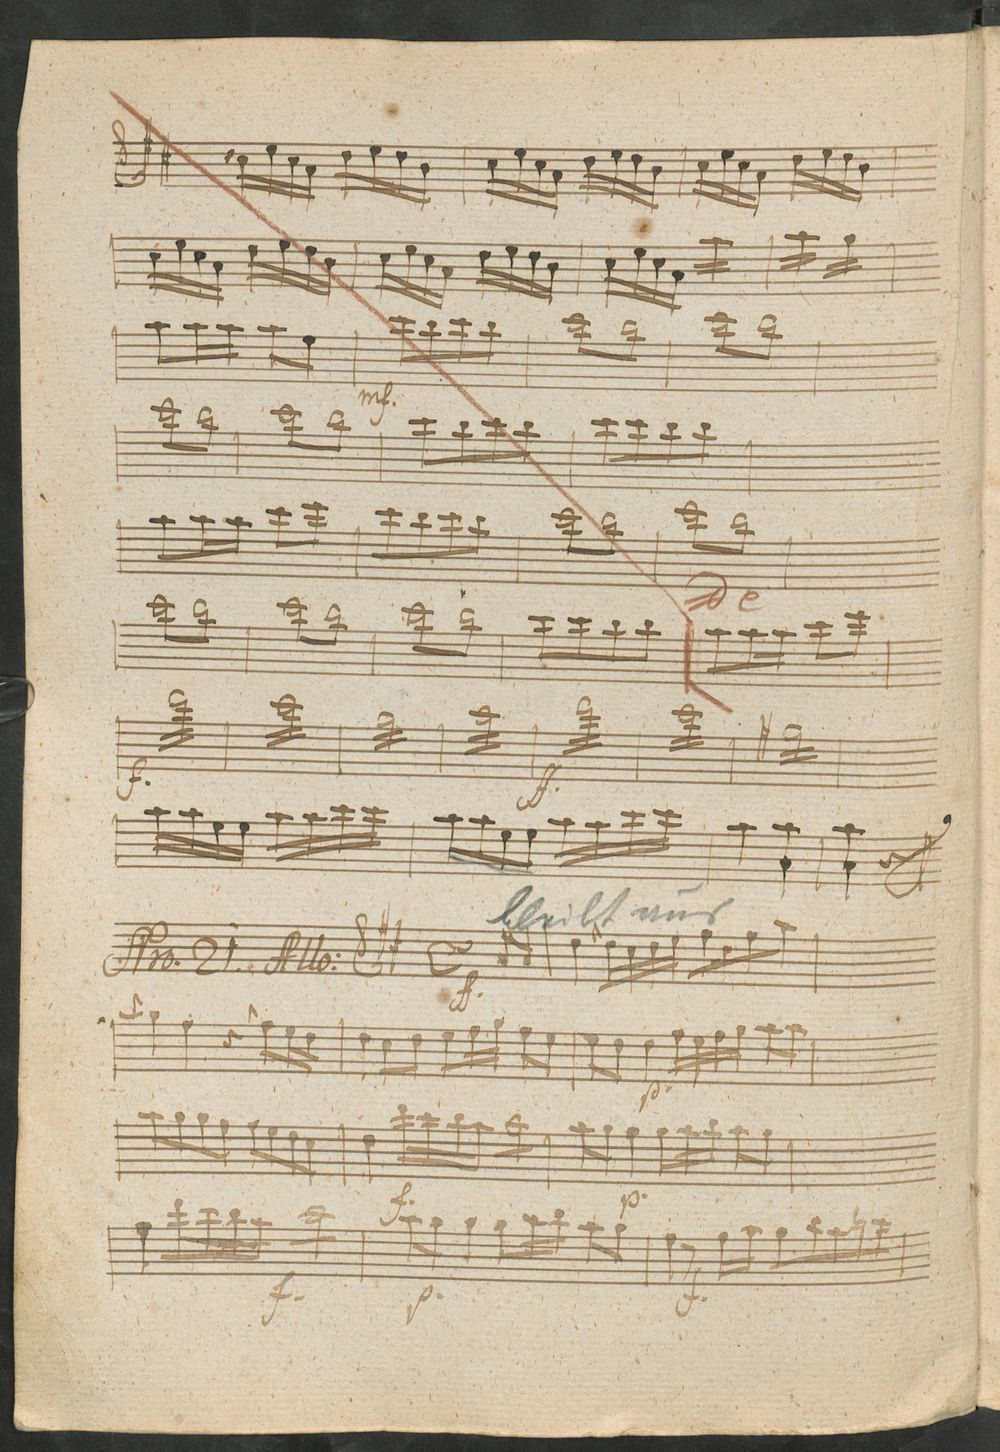 mf.
de
f. ff.
bleibt aus
Nro. 21. Allo:
ff.
p.
f. p.
f. p. f.